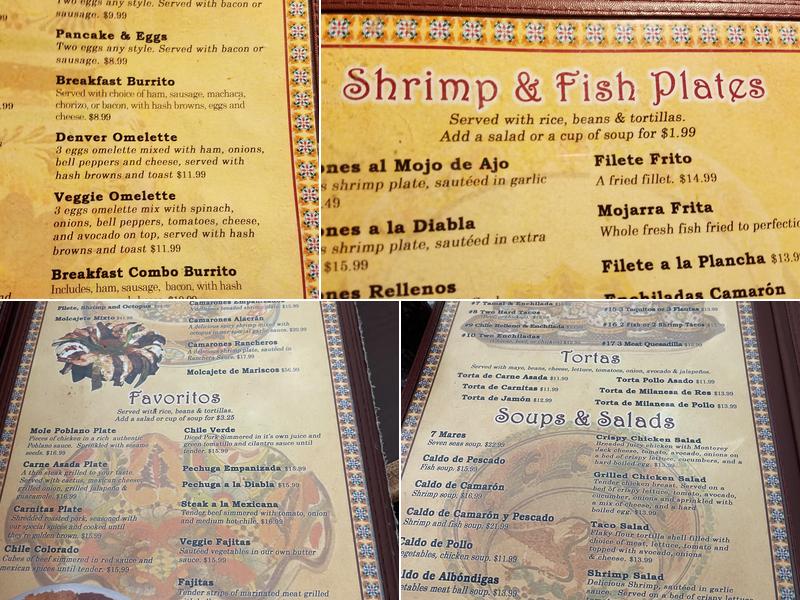 Two eggs any style. Served with bacon or
sausage. $9.99
Pancake & Eggs
Two eggs any style. Served with bacon or
sausage. $8.99
Breakfast Burrito
Served with choice of ham, sausage, machaca,
chorizo, or bacon, with hash browns, eggs and
cheese. $8.99
Denver Omelette
3 eggs omelette mixed with ham, onions,
bell peppers and cheese, served with
hash browns and toast $11.99
Veggie Omelette
3 eggs omelette mix with spinach,
onions, bell peppers, tomatoes, cheese,
and avocado on top, served with hash
browns and toast $11.99
Breakfast Combo Burrito
Includes, ham, sausage, bacon, with hash
Shrimp & Fish Plates
Served with rice, beans & tortillas.
Add a salad or a cup of soup for $1.99
ones al Mojo de Ajo
s shrimp plate, sautéed in garlic
.49
ones a la Diabla
s shrimp plate, sautéed in extra
$15.99
ones Rellenos
Filete Frito
A fried fillet. $14.99
Mojarra Frita
Whole fresh fish fried to perfectio
Filete a la Plancha $13.9
Enchiladas Camarón
Filete, Shrimp and Octopus
Molcajete Mixto
Camarones Empanizados
Camarones Alacrán
A delicious spicy shrimp mixed with
Camarones Rancheros
A delicious shrimp plate, sautéed in
Ranchera Sauce. $17.99
Molcajete de Mariscos $36.99
Favoritos
Served with rice, beans & tortillas.
Add a salad or cup of soup for $3.25
Mole Poblano Plate
Pieces of chicken in a rich authentic
Poblano sauce. Sprinkled with sesame
seeds. $16.99
Carne Asada Plate
A thin steak grilled to your taste.
Served with cactus, mexican cheese,
grilled onion, grilled jalapeño &
guacamole. $16.99
Carnitas Plate
Shredded roasted pork, seasoned with
our special spices and cooked until
they're golden brown. $15.99
Chile Colorado
Cubes of beef simmered in red sauce and
mexican spices until tender. $15.99
Chile Verde
Diced Pork Simmered in it's own juice and
green tomatillo and cilantro sauce until
tender. $15.99
Pechuga Empanizada $15.99
Pechuga a la Diabla $15.99
Steak a la Mexicana
Tender beef simmered with tomato, onion
and medium hot chile. $16.99
Veggie Fajitas
Sautéed vegetables in our own butter
sauce. $15.99
Fajitas
Tender strips of marinated meat grilled
#7 Tamal & Enchilada
#8 Two Hard Tacos
#9 Chile Relleno & Enchilada
#10 Two Enchiladas
#15 3 Taquitos or 3 Flautas
#16 2 Fish or 2 Shrimp Tacos
#17 3 Meat Quesadilla
Tortas
Served with mayo, beans, cheese, lettuce, tomatoes, onion, avocado & jalapeños.
Torta de Carne Asada $11.99
Torta de Carnitas $11.99
Torta de Jamón $12.99
Torta Pollo Asado $11.99
Torta de Milanesa de Res $13.99
Torta de Milanesa de Pollo $13.99
Soups & Salads
7 Mares
Seven seas soup. $22.99
Caldo de Pescado
Fish soup. $15.99
Caldo de Camarón
Shrimp soup. $16.99
Caldo de Camarón y Pescado
Shrimp and fish soup. $21.99
Caldo de Pollo
vegetables, chicken soup. $11.99
ldo de Albóndigas
etables meat ball soup. $13.99
Crispy Chicken Salad
Breaded juicy chicken with Monterey
Jack cheese, tomato, avocado, onions on
a bed of crispy lettuce, cucumbers, and a
hard boiled egg. $13.99
Grilled Chicken Salad
Tender chicken breast. Served on a
bed of crispy lettuce, tomato, avocado,
cucumber, onions and sprinkled with
mix of cheese, and a hard
boiled egg. $13.99
Taco Salad
Flaky flour tortilla shell filled with
choice of meat, lettuce, tomato and
topped with avocado, onions
& cheese. $13.99
Shrimp Salad
Delicious Shrimp, sautéed in garlic
sauce. Served on a bed of crispy lettuce